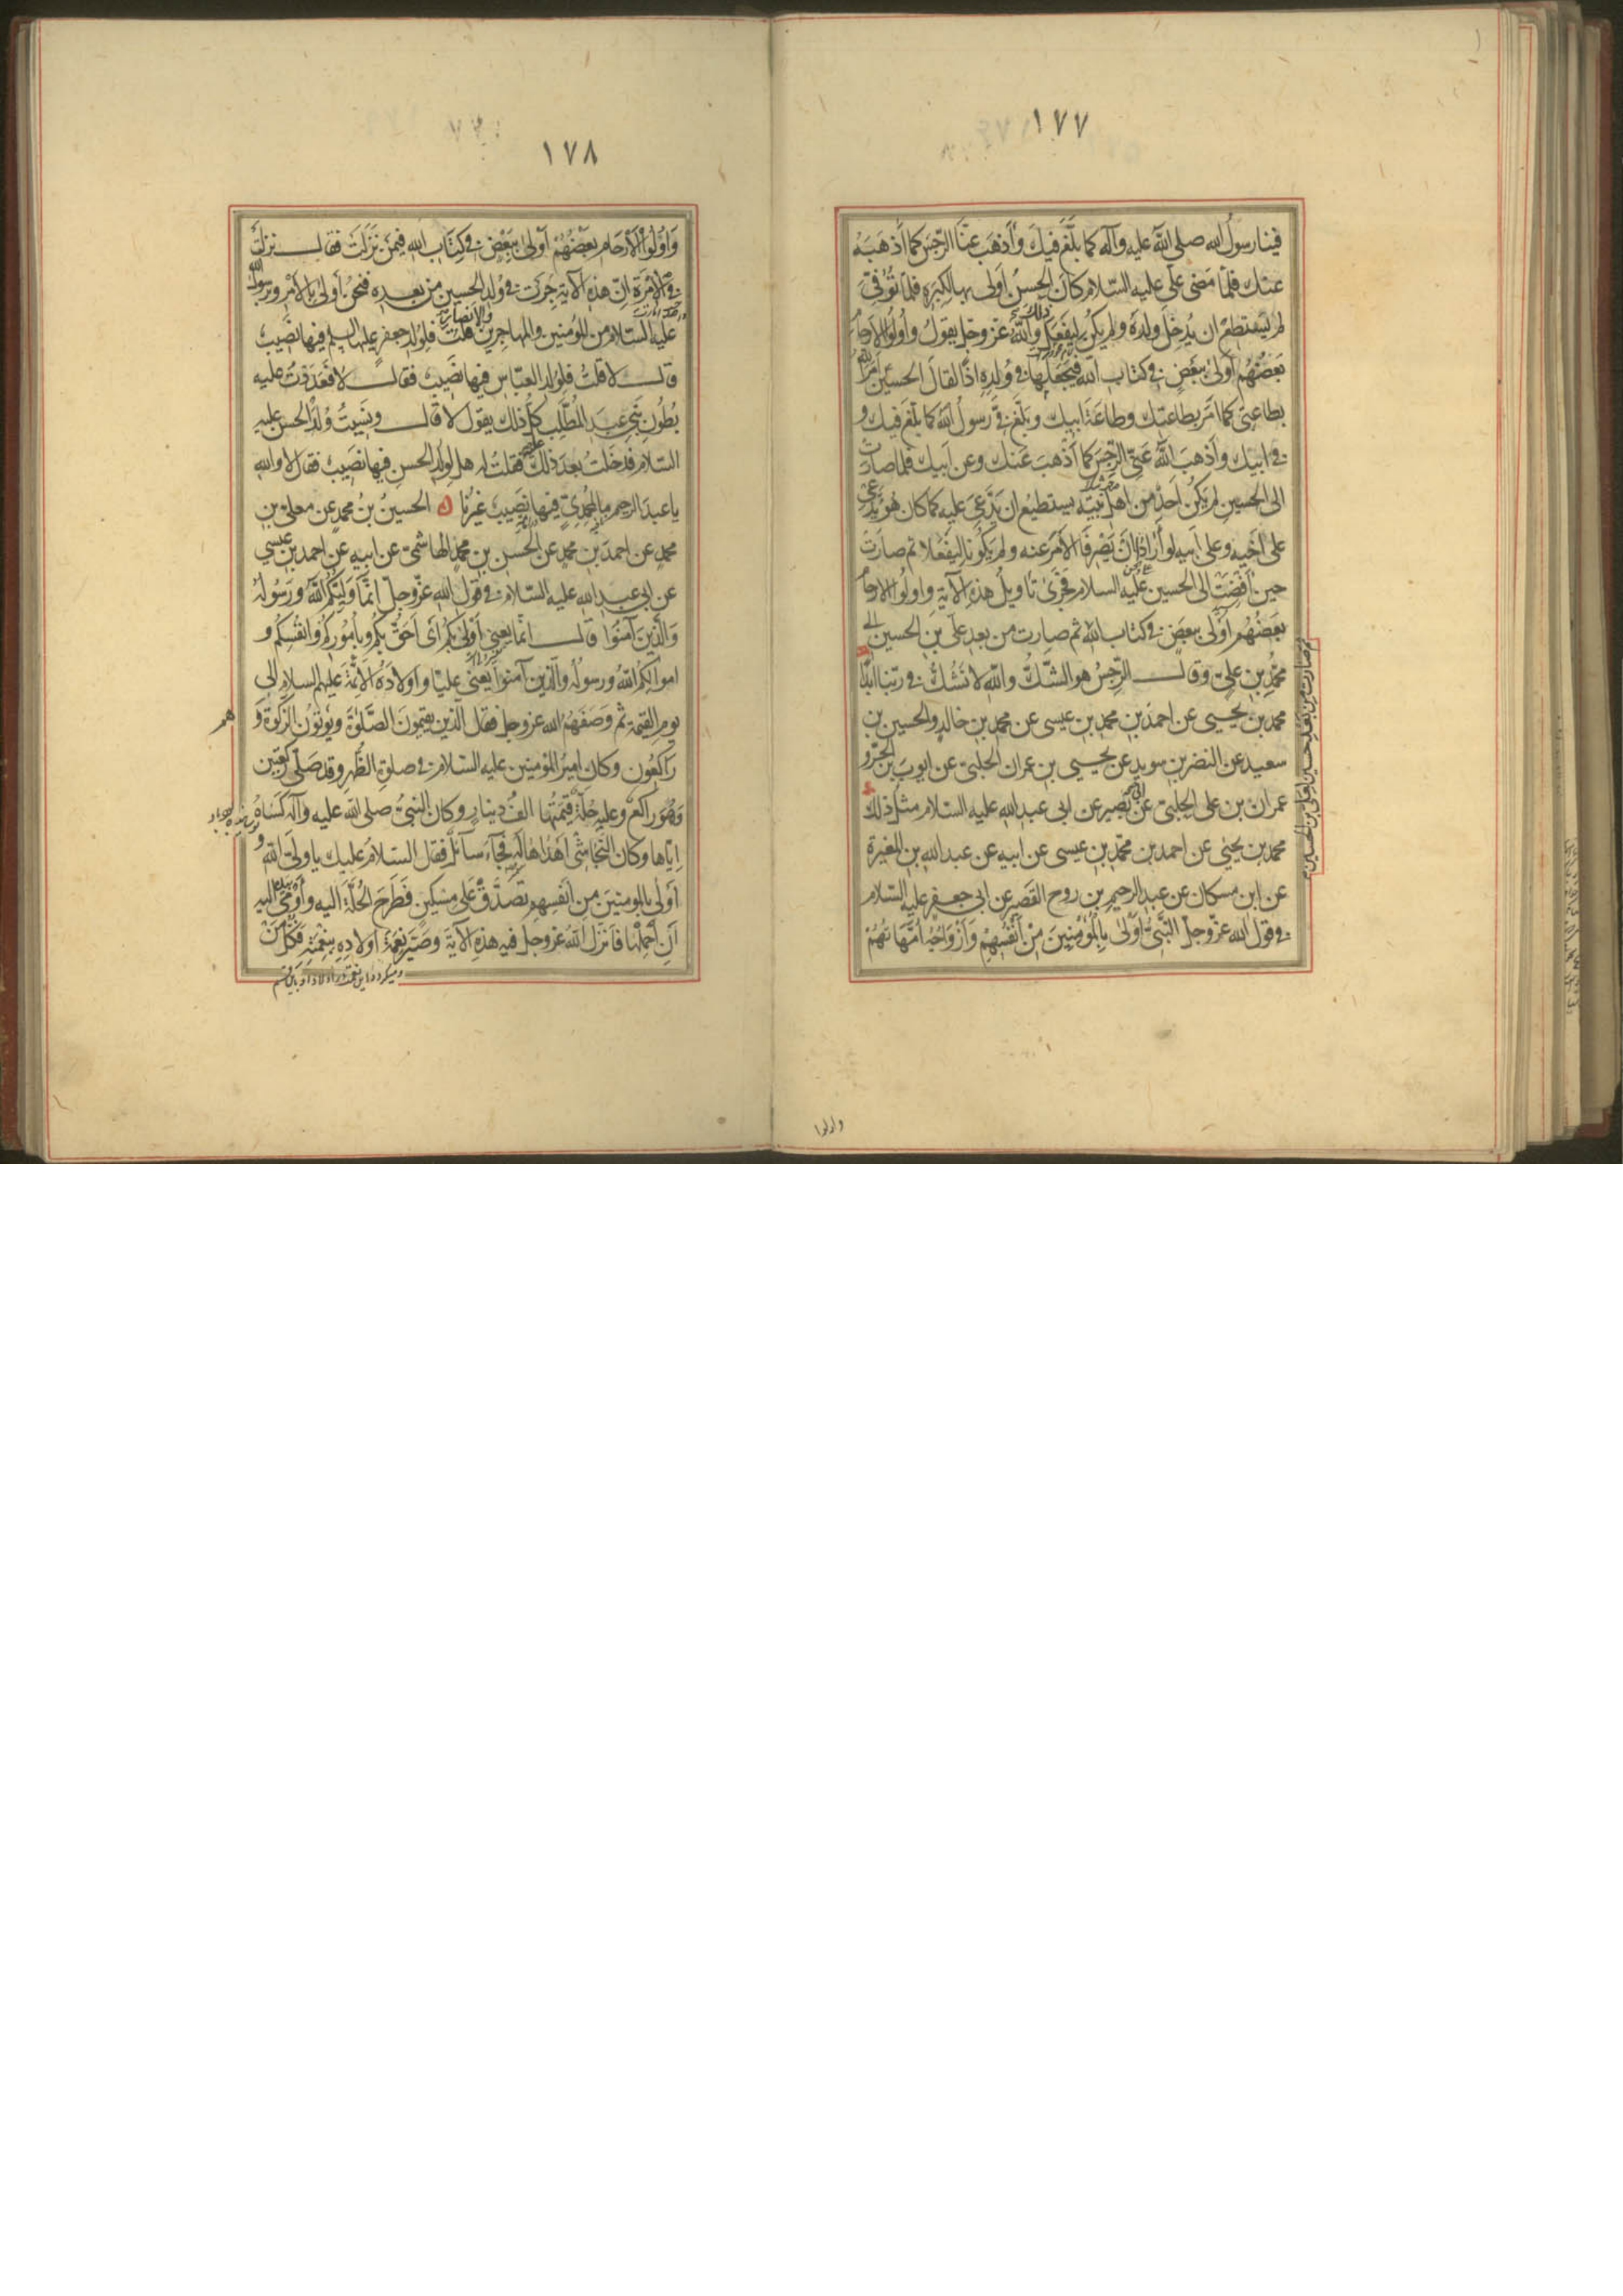 ١٧٧
فينا رسول الله صلى الله عليه وآله كما بلّغ فيك وأذهب عنّا الرّجس كما أذهبه
عنك فلمّا مضى علي عليه السّلام كان الحسن أولى بها لكبره فلمّا توفّي
لم يستطع ان يدخل ولده ولم يكن ليفعل ذلك والله عزّ وجلّ يقول وأولوا الأرحام
بعضهم أولى ببعض في كتاب الله فيجعلها في ولده اذًا لقال الحسين أمر الله
بطاعتي كما أمر بطاعتك وطاعة ابيك وبلّغ فيّ رسول الله كما بلّغ فيك و
في ابيك وأذهب الله عنّي الرّجس كما أذهب عنك وعن أبيك فلمّا صارت
الى الحسين لم يكن أحد من اهل بيته يستطيع ان يدّعي عليه كما كان هو يدّعي
على أخيه وعلى أبيه لو أرادا أن يصرفا الأمر عنه ولم يكونا ليفعلا ثم صارت
حين أفضت إلى الحسين عليه السلام فجرى تأويل هذه الآية واولوا الارحام
بعضهم أولى ببعض في كتاب الله ثم صارت من بعد علي بن الحسين الى
محمّد بن عليّ وقال الرّجس هو الشّكّ والله لا نشكّ في ربّنا ابدًا
محمد بن يحيى عن احمد بن محمد بن عيسى عن محمد بن خالد والحسين بن
سعيد عن النضر بن سويد عن يحيى بن عمران الحلبيّ عن ايوب بن الحرّ و
عمران بن علي الحلبيّ عن أبي بصير عن ابي عبد الله عليه السلام مثل ذلك
محمد بن يحيى عن احمد بن محمّد بن عيسى عن ابيه عن عبد الله بن المغيرة
عن ابن مسكان عن عبد الرحيم بن روح القصير عن ابي جعفر عليه السّلام
في قول الله عزّ وجلّ النّبيّ أولى بالمؤمنين من أنفسهم وأزواجه أمّهاتهم
ثم صارت من بعد الحسين لعلي بن الحسين
واولوا
١٧٨
وأولوا الأرحام بعضهم أولى ببعض في كتاب الله فيمن نزلت فقال نزلت
في الإمرة انّ هذه الآية جرت في ولد الحسين من بعده فنحن أولى بالأمر وبرسول الله
عليه السّلام من المؤمنين والمهاجرين والأنصار قلت فلولد جعفر عليه السلم فيها نصيب
قال لا قلت فلولد العبّاس فيها نصيب فقال لا فعددت عليه
بطون بني عبد المطّلب كلّ ذلك يقول لا قال ونسيت ولد الحسن عليه
السّلام فدخلت بعد ذلك عليه فقلت له هل لولد الحسن فيها نصيب فقال لا والله
يا عبد الرحيم ما لمحمّديّ فيها نصيب غيرنا الحسين بن محمد عن معلّى بن
محمد عن احمد بن محمد عن الحسن بن محمد الهاشميّ عن ابيه عن احمد بن عيسى
عن ابي عبد الله عليه السّلام في قول الله عزّ وجلّ انّما وليّكم الله ورسوله
والّذين آمنوا قال انّما يعني أولى بكم أي أحقّ بكم وبأموركم وانفسكم و
اموالكم الله ورسوله والّذين آمنوا يعني عليّا واولاده الائمّة عليهم السلام الى
يوم القيمة ثم وصفهم الله عز وجل فقال الّذين يقيمون الصّلوة ويؤتون الزّكوة و
هم
راكعون وكان امير المؤمنين عليه السّلام في صلوة الظّهر وقد صلّى ركعتين
وهو راكع وعليه حلّة قيمتها الف دينار وكان النبيّ صلى الله عليه وآله كساه
ايّاها وكان النّجاشيّ أهداها له فجاء سائل فقال السّلام عليك يا وليّ الله و
أولى بالمؤمنين من أنفسهم تصدّق على مسكين فطرح الحلّة اليه وأومى بيده اليه
أن أحملها فأنزل الله عز وجل فيه هذه الآية وصيّر نعمة أولاده بنعمته فكلّ من